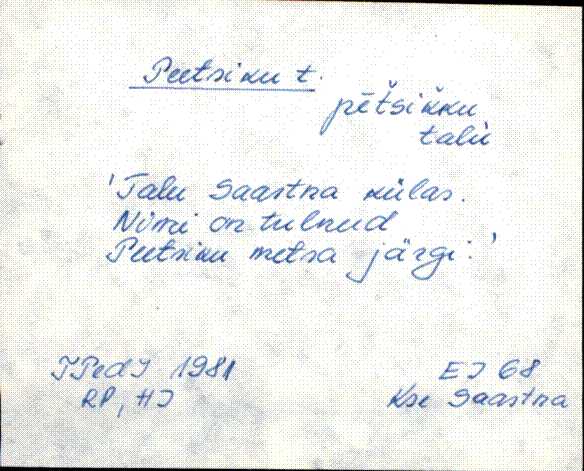 Peetsiku t.
pētsikku
talu
'Talu Saastna külas.
Nimi on tulnud
Peetsiku metsa järgi.'
TPedI 1981
RP, HJ
EJ 68
Kse Saastna